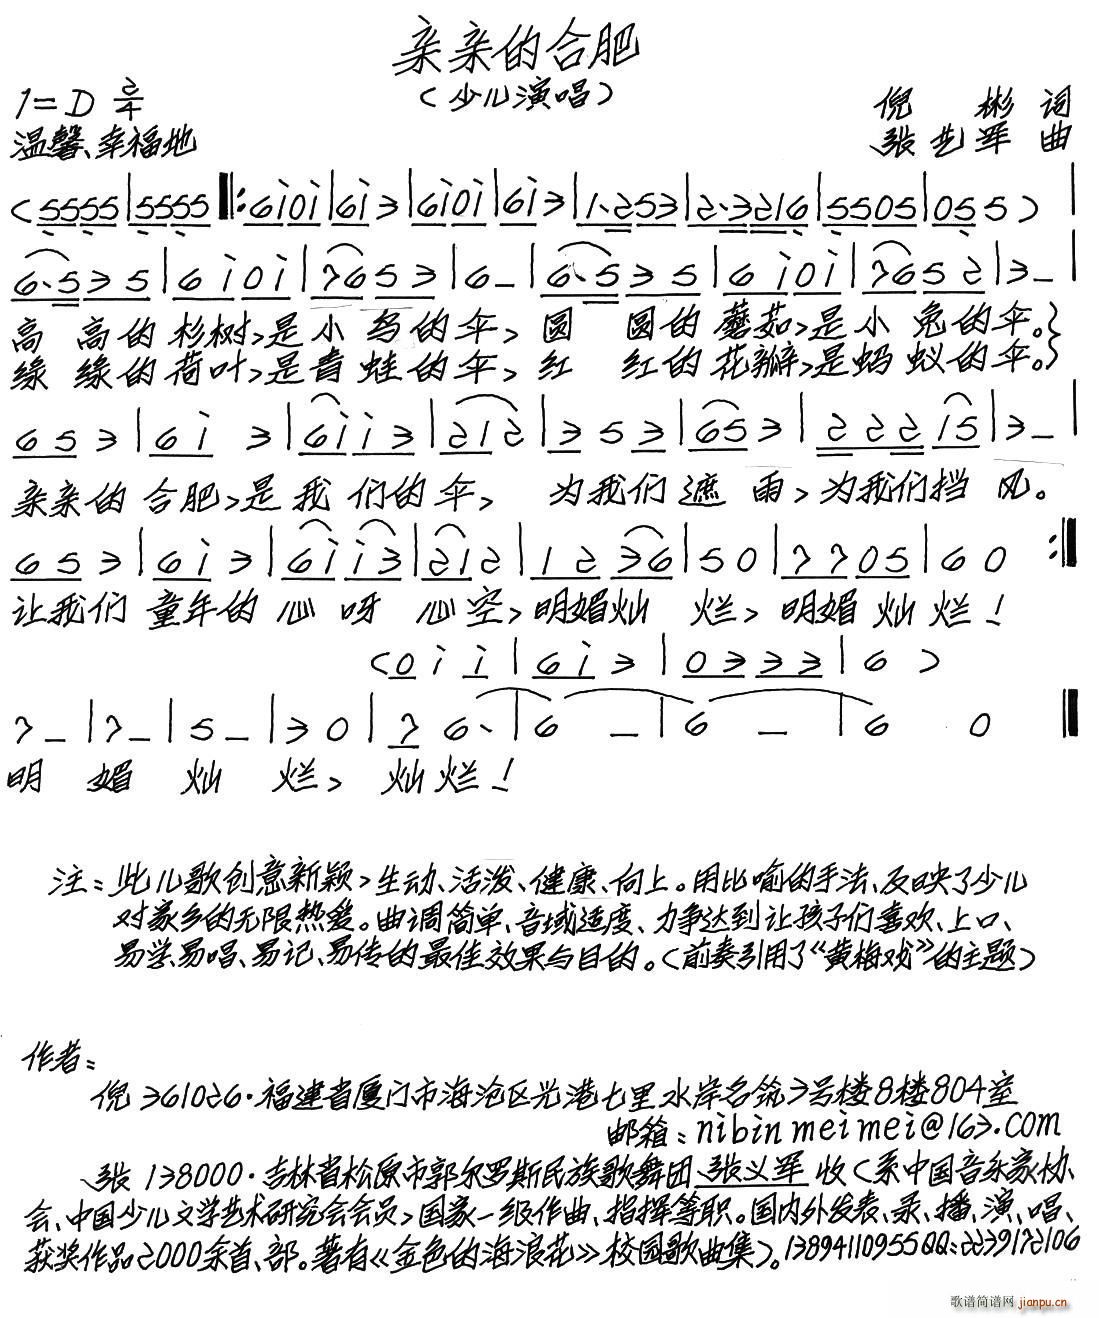 亲亲的合肥
（少儿演唱）
1=D 2/4
倪 彬 词
温馨、幸福地
张艺军 曲
(5555|5555‖:6i0i|6i3|6i0i|6i3|1·253|2·3216|5505|055)|
6·535|6i0i|7653|6-|6·535|6i0i|7652|3-|
高 高的杉树,是小鸟的伞, 圆 圆的蘑茹,是小兔的伞。}
缘 缘的荷叶,是青蛙的伞, 红 红的花瓣,是蚂蚁的伞。}
653|6i 3|6ii3|212|353|653|22215|3-|
亲亲的合肥,是我们的伞, 为我们遮雨,为我们挡风。
653|6i3|6ii3|212|1236|50|7705|60:‖
让我们童年的心呀心空,明媚灿 烂,明媚灿烂！
(0ii|6i3|0333|6)
7-|7-|5-|30|76·|6-|6-|60‖
明 媚 灿 烂, 灿烂！
注：此儿歌创意新颖,生动、活泼、健康、向上。用比喻的手法、反映了少儿
对家乡的无限热爱。曲调简单、音域适度、力争达到让孩子们喜欢、上口、
易学、易唱、易记、易传的最佳效果与目的。(前奏引用了《黄梅戏》的主题)
作者：
倪 361026·福建省厦门市海沧区兴港七里水岸名筑3号楼8楼804室
邮箱：nibinmeimei@163.com
张 138000·吉林省松原市郭尔罗斯民族歌舞团 张义军 收(系中国音乐家协
会、中国少儿文学艺术研究会会员,国家一级作曲、指挥等职。国内外发表、录、播、演、唱、
获奖作品2000余首、部。著有《金色的海浪花》校园歌曲集)。13894110955QQ:2239172106
歌谱简谱网 jianpu.cn